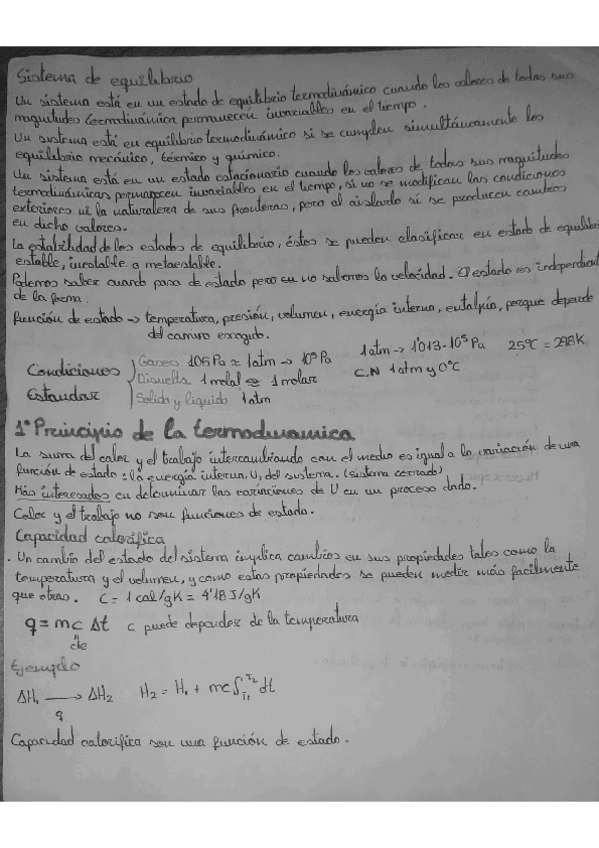 Sistema de equilibrio
Un sistema está en un estado de equilibrio termodinámico cuando los valores de todas sus
magnitudes termodinámica permanecen invariables en el tiempo.
Un sistema está en equilibrio termodinámico si se cumplen simultáneamente los
equilibrio mecánico, térmico y químico.
Un sistema está en un estado estacionario cuando los valores de todas sus magnitudes
termodinámicas permanecen invariables en el tiempo, si no se modifican las condiciones
exteriores ni la naturaleza de sus fronteras, pero al aislarlo si se producen cambios
en dicho valores.
La estabilidad de los estados de equilibrio, éstos se pueden clasificar en estado de equilibri
estable, inestable o metaestable.
Podemos saber cuando pasa de estado pero en no sabemos la velocidad. El estado es independient
de la forma.
función de estado → temperatura, presión, volumen, energía interna, entalpía, porque depende
del camino escogido.
Condiciones Estandar
Gases 105 Pa ≈ 1atm → 10⁵ Pa
Disuelta 1 molal ≈ 1 molar
Solido y liquido 1atm
1 atm → 1'013·10⁵ Pa 25ºC = 298K
C.N 1 atm y 0ºC
1º Principio de la termodinamica
La suma del calor y el trabajo intercambiando con el medio es igual a la variación de una
función de estado: la energía interna, U, del sistema. (sistema cerrado)
Más interesados en determinar las variaciones de U en un proceso dado.
Calor y el trabajo no son funciones de estado.
Capacidad calorifica
. Un cambio del estado del sistema implica cambios en sus propiedades tales como la
temperatura y el volumen, y como estas propiedades se pueden medir más facilmente
que otras. C = 1 cal/gK = 4'18 J/gK
q = mc Δt c puede depender de la temperatura
cte
Ejemplo
ΔH₁ → ΔH₂ H₂ = H₁ + mc∫T₁T₂ dt
q
Capacidad calorifica son una función de estado.